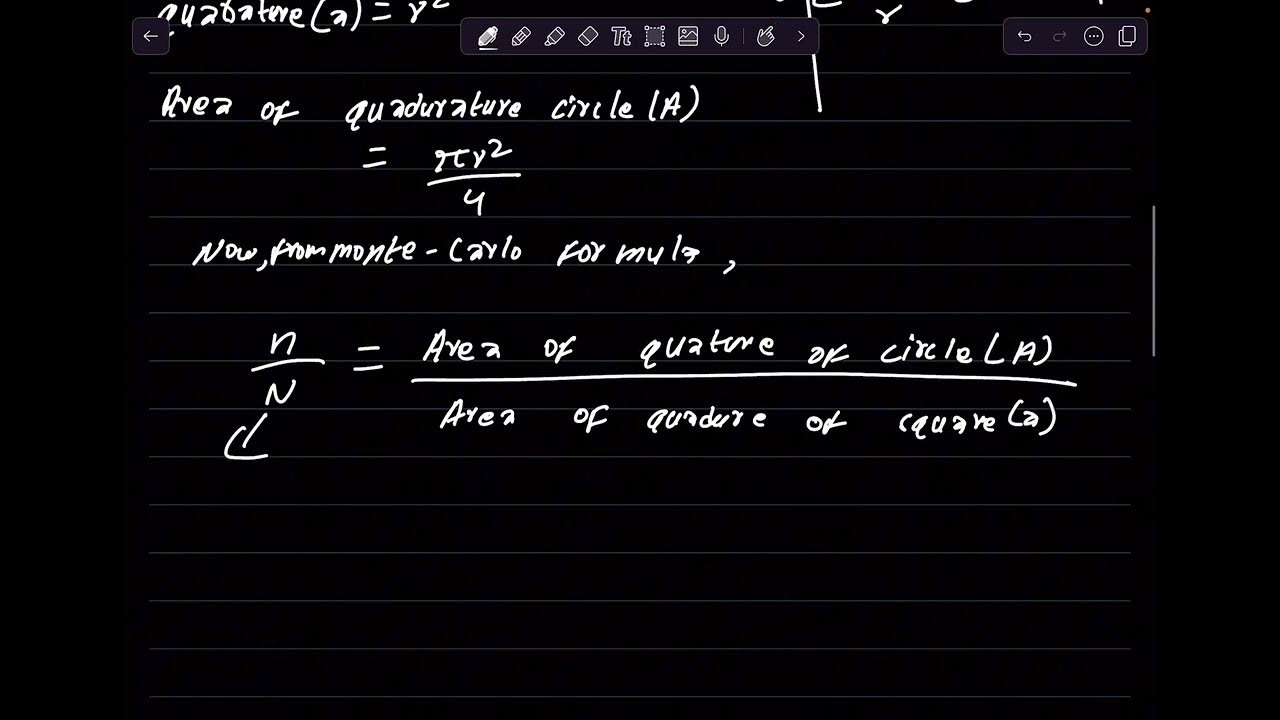 quadrature(a) = r²
r
Area of quadurature circle(A)
= πr²
4
Now, from monte-Carlo formula,
n = Area of quature of circle(A)
N Area of quadure of square(a)
Tt